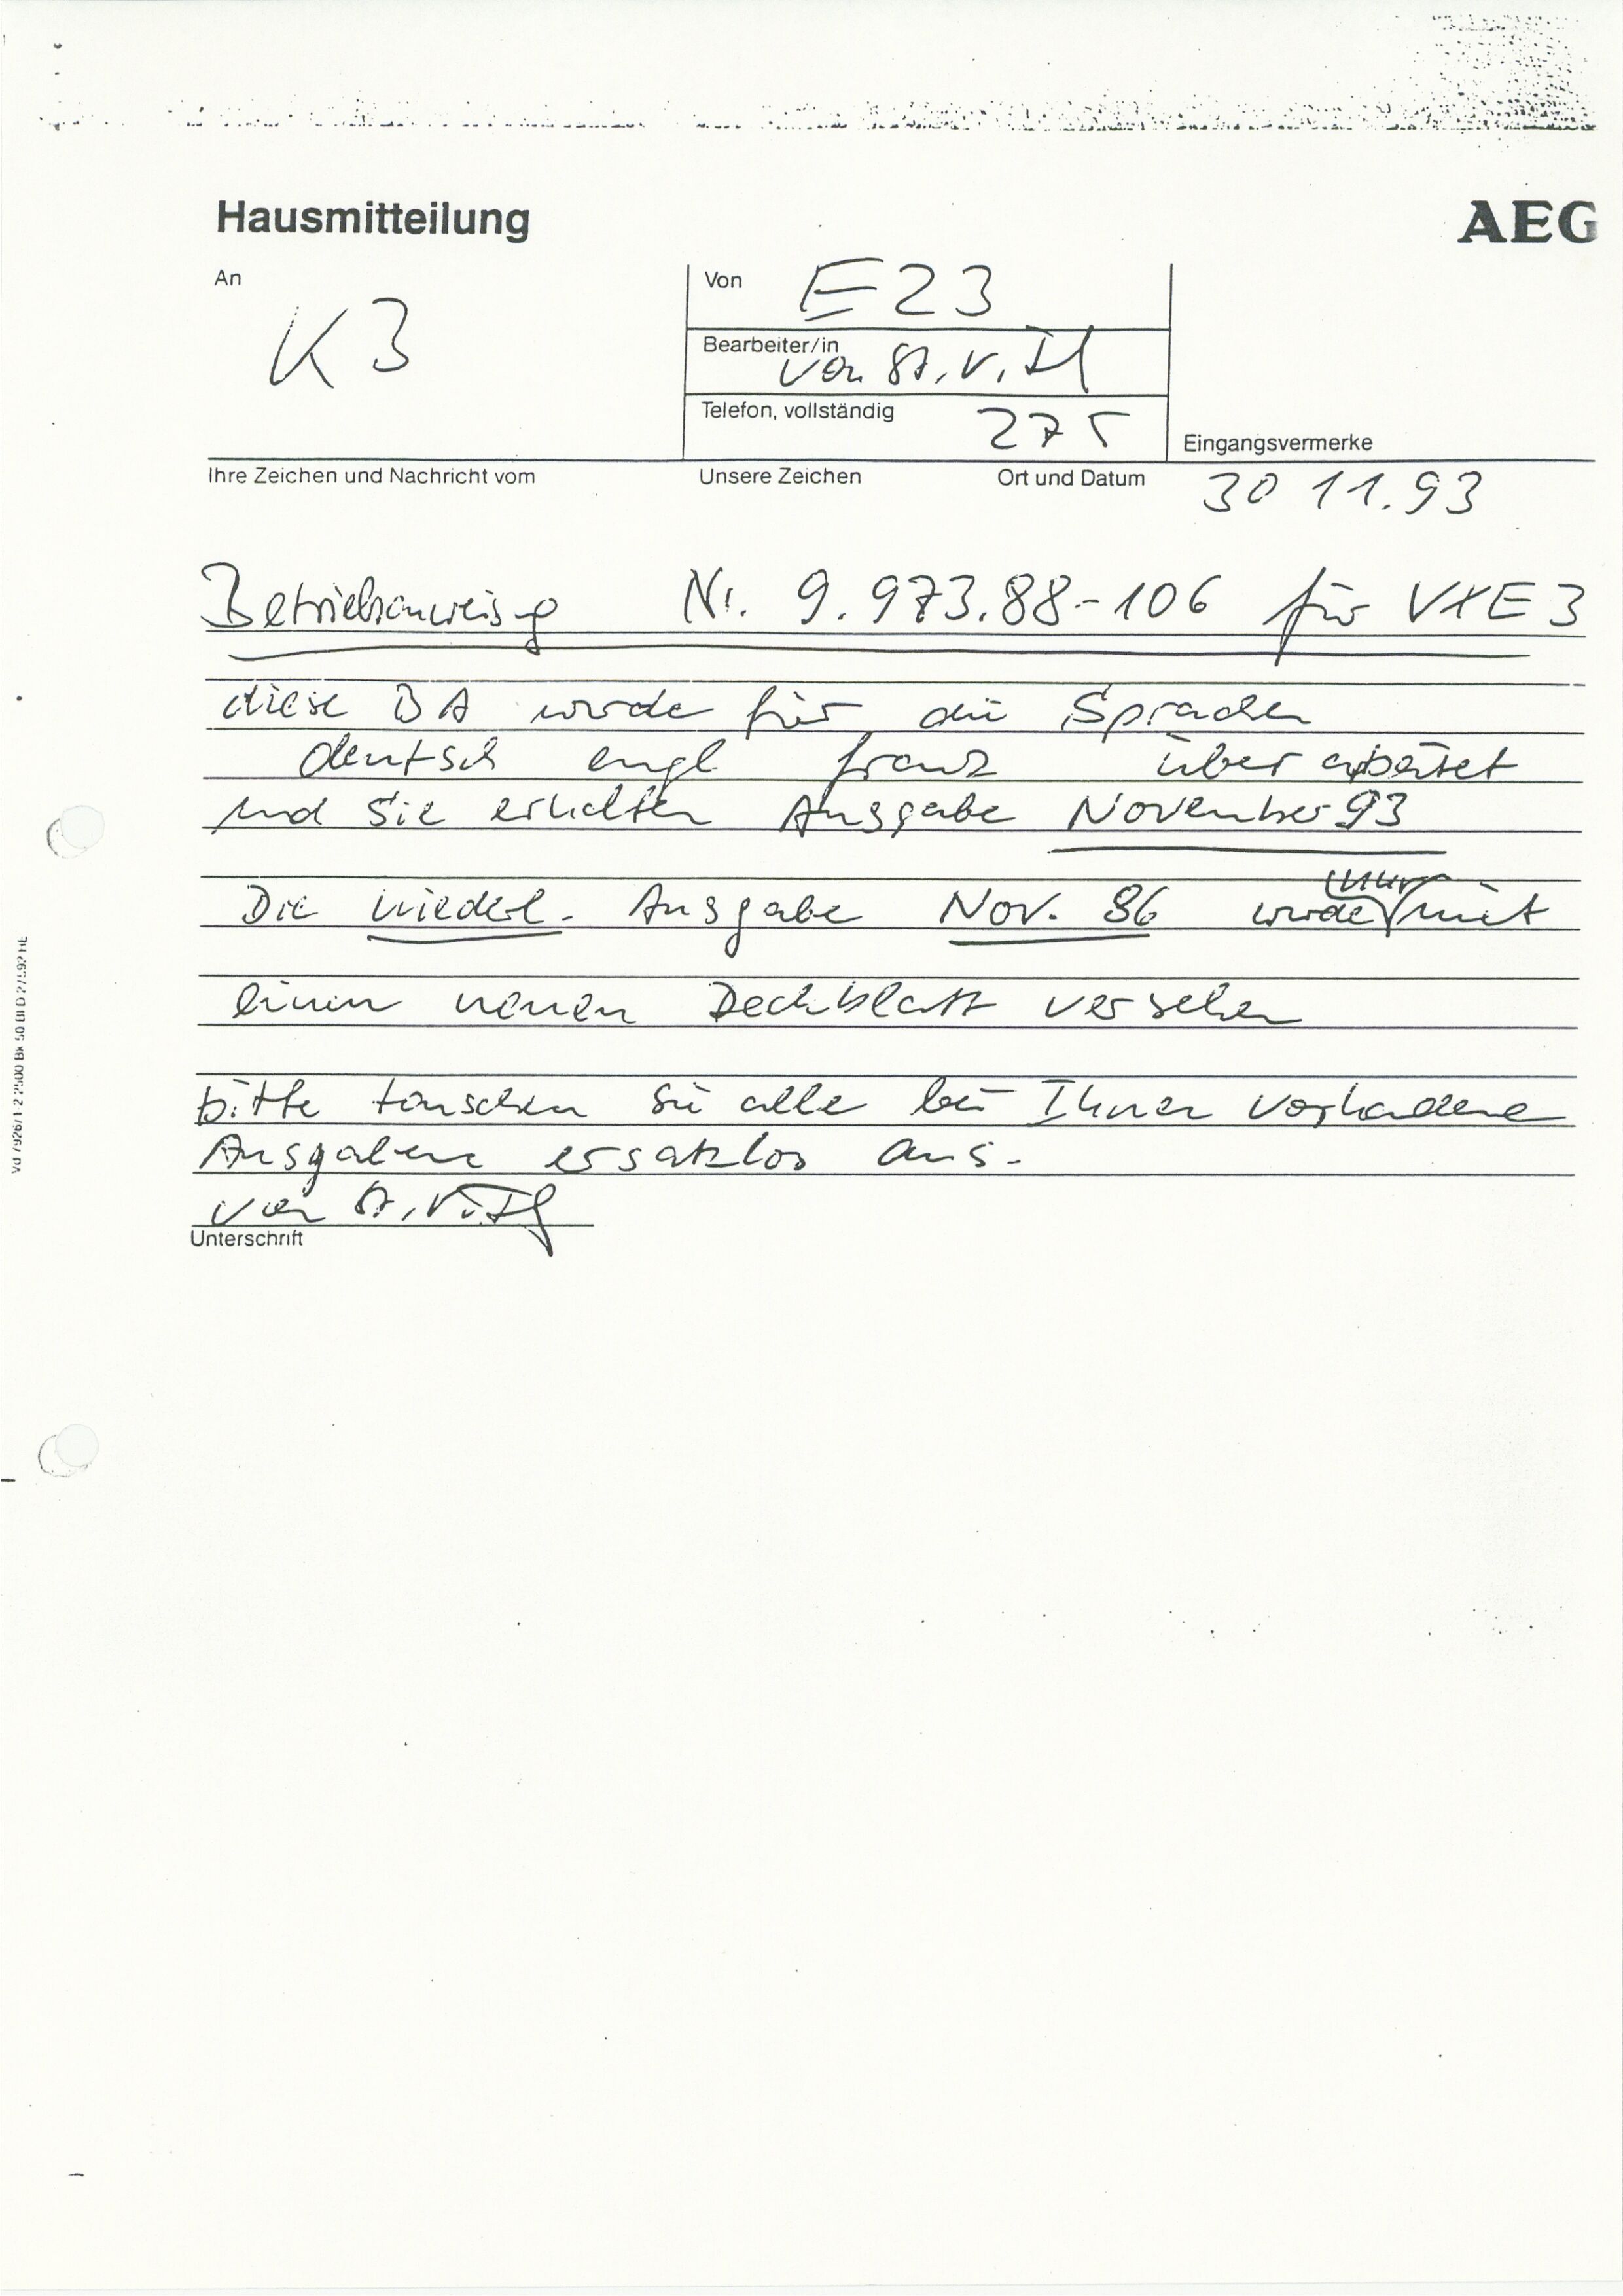 Hausmitteilung
AEG
An
K3
Von
E23
Bearbeiter/in
von
Telefon, vollständig
275
Eingangsvermerke
Ihre Zeichen und Nachricht vom
Unsere Zeichen
Ort und Datum
30 11.93
Betriebsanweisung Nr. 9.973.88-106 für VXE 3
diese BA wurde für die Sprachen
deutsch engl franz überarbeitet
und Sie erhalten Ausgabe November 93
Die niederl. Ausgabe Nov. 86 wurde nur mit
einem neuen Deckblatt versehen
bitte tauschen Sie alle bei Ihnen vorhandene
Ausgaben ersatzlos aus.
von
Unterschrift